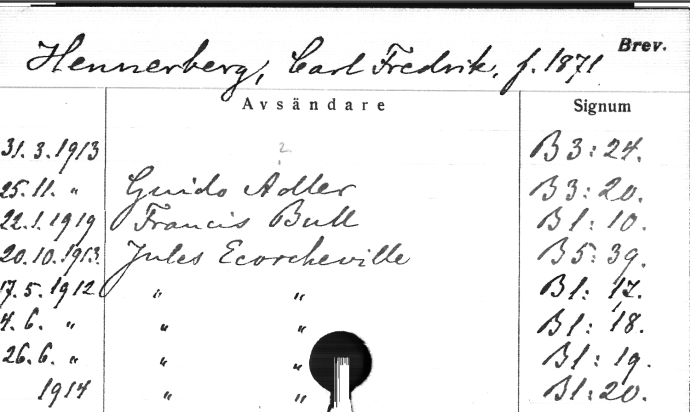 Brev.
Hennerberg, Carl Fredrik, f. 1871
Avsändare Signum
31.3.1913 2. B 3: 24.
25.11. " Guido Adler B 3: 20.
22.1.1919 Francis Bull B 1: 10.
20.10.1913. Jules Ecorcheville B 5: 39.
17.5.1912 " " B 1: 17.
4.6. " " " B 1: 18.
26.6. " " " B 1: 19.
1914 " " B 1: 20.